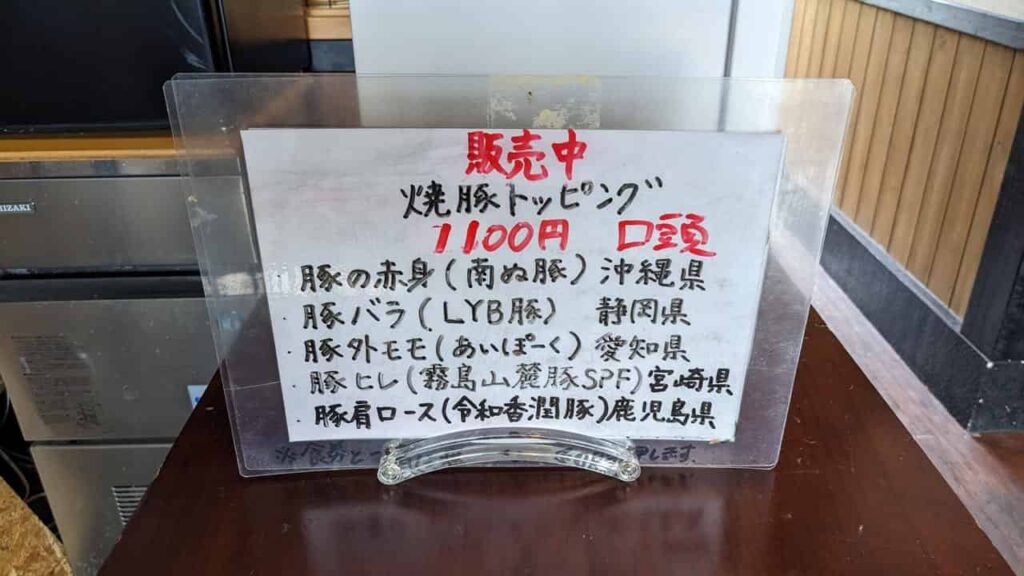 販売中
焼豚トッピング
1100円 口頭
・豚の赤身(南ぬ豚) 沖縄県
・豚バラ(LYB豚) 静岡県
・豚外モモ(あいぽーく) 愛知県
・豚ヒレ(霧島山麓豚SPF)宮崎県
・豚肩ロース(令和香潤豚)鹿児島県